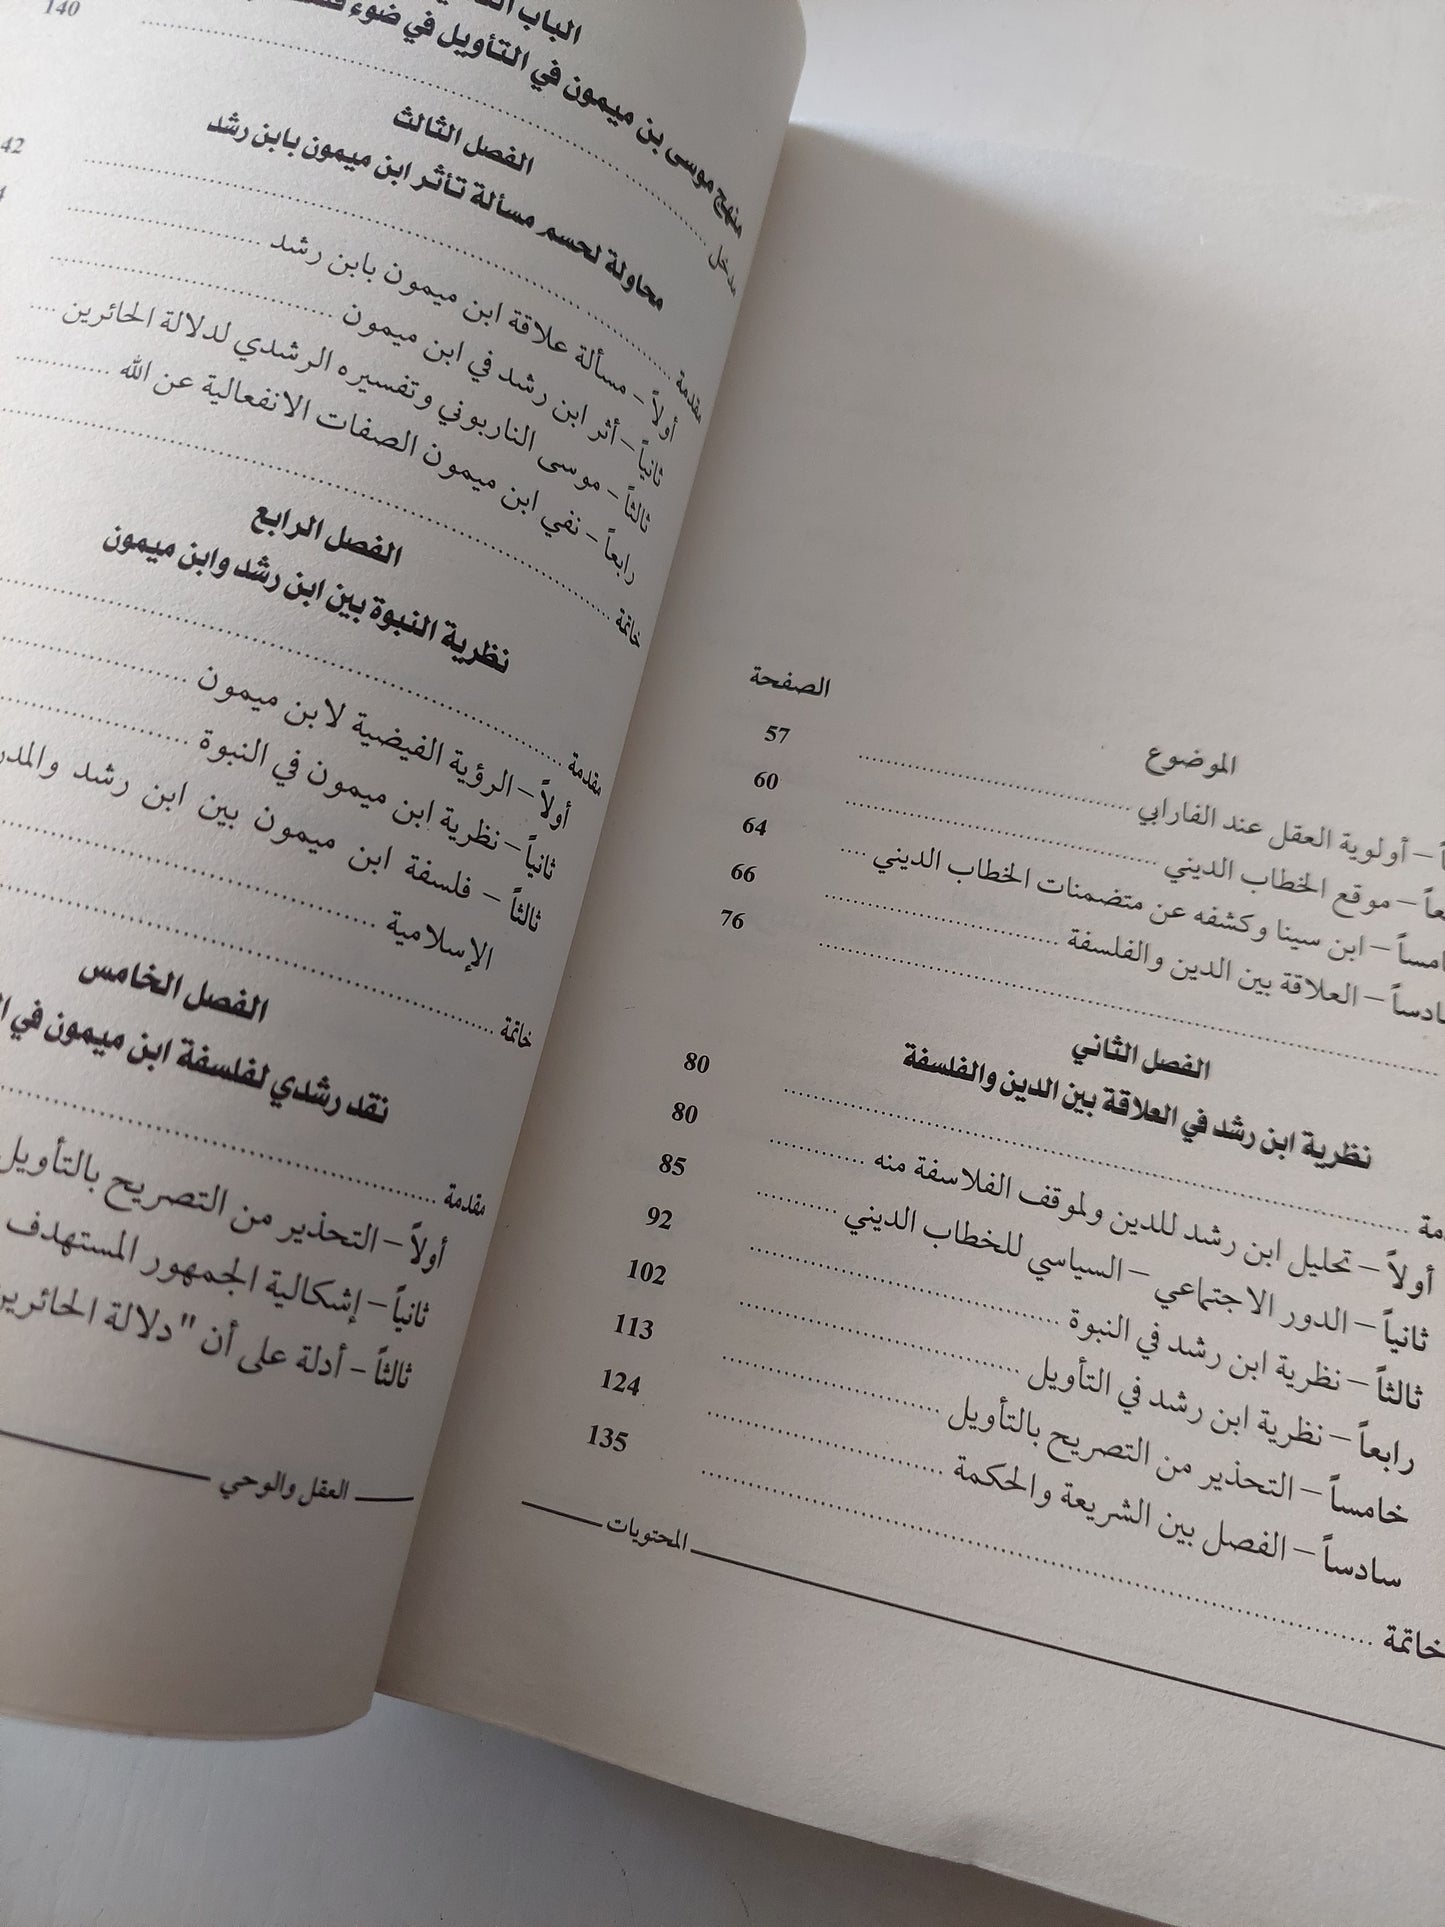 الموضوع الصفحة
– أولوية العقل عند الفارابي ........ 57
– موقع الخطاب الديني ........ 60
– ابن سينا وكشفه عن متضمنات الخطاب الديني .... 64
– العلاقة بين الدين والفلسفة ........ 66
........ 76
الفصل الثاني
نظرية ابن رشد في العلاقة بين الدين والفلسفة
........ 80
أولاً – تحليل ابن رشد للدين ولموقف الفلاسفة منه ........ 80
ثانياً – الدور الاجتماعي – السياسي للخطاب الديني ........ 85
ثالثاً – نظرية ابن رشد في النبوة ........ 92
رابعاً – نظرية ابن رشد في التأويل ........ 102
خامساً – التحذير من التصريح بالتأويل ........ 113
سادساً – الفصل بين الشريعة والحكمة ........ 124
خاتمة ........ 135
المحتويات
الباب
منهج موسى بن ميمون في التأويل في ضوء
مدخل ........ 140
الفصل الثالث
محاولة لحسم مسألة تأثر ابن ميمون بابن رشد
مقدمة ........ 42
أولاً – مسألة علاقة ابن ميمون بابن رشد ........
ثانياً – أثر ابن رشد في ابن ميمون ........
ثالثاً – موسى الناربوني وتفسيره الرشدي لدلالة الحائرين ....
رابعاً – نفي ابن ميمون الصفات الانفعالية عن الله ........
خاتمة ........
الفصل الرابع
نظرية النبوة بين ابن رشد وابن ميمون
مقدمة ........
أولاً – الرؤية الفيضية لابن ميمون ........
ثانياً – نظرية ابن ميمون في النبوة ........
ثالثاً – فلسفة ابن ميمون بين ابن رشد
الإسلامية ........
خاتمة ........
الفصل الخامس
نقد رشدي لفلسفة ابن ميمون في
مقدمة ........
أولاً – التحذير من التصريح بالتأويل
ثانياً – إشكالية الجمهور المستهدف
ثالثاً – أدلة على أن "دلالة الحائرين
العقل والوحي